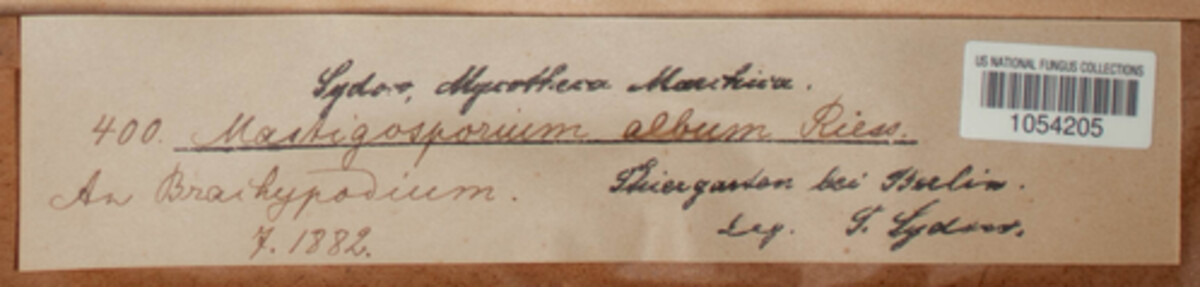 Sydow, Mycotheca Marchica.
400. Mastigosporium album Riess.
An Brachypodium.
7. 1882.
Thiergarten bei Berlin.
Leg. P. Sydow.
US NATIONAL FUNGUS COLLECTIONS
1054205